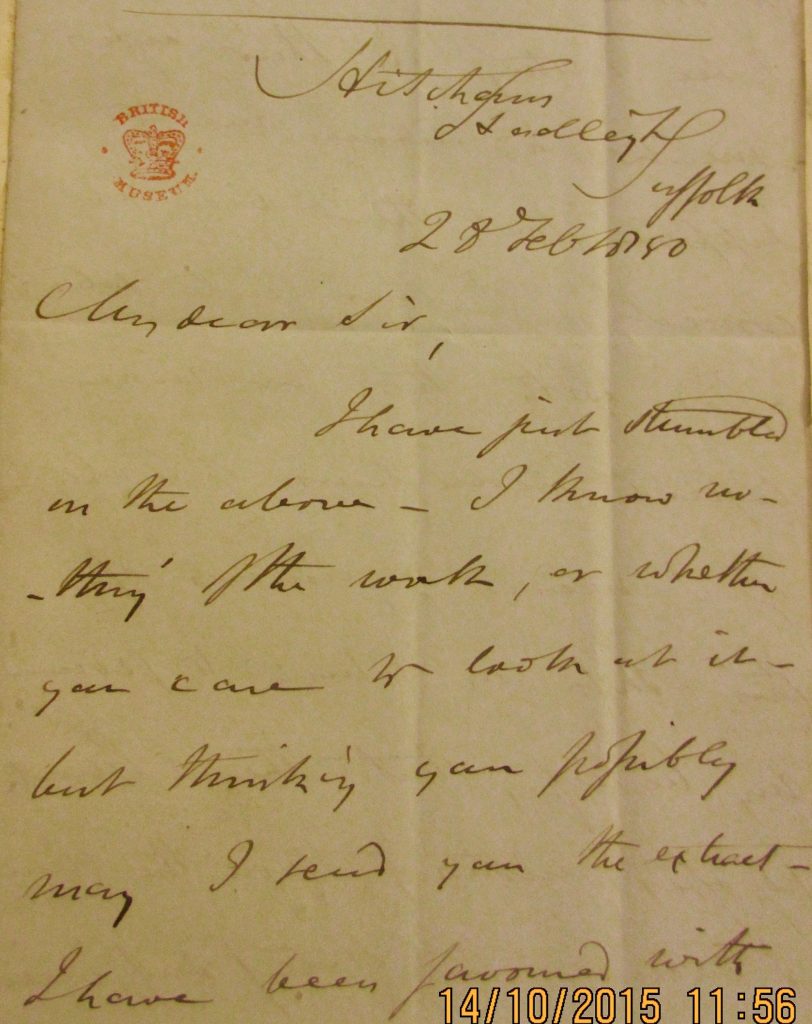 BRITISH
MUSEUM
Hitcham
Hadleigh
Suffolk
28 Feb 1850
My dear Sir,
I have just stumbled
on the above - I know no-
-thing of the work, or whether
you care to look at it -
but thinking you possibly
may I send you the extract -
I have been favoured with
14/10/2015 11:56